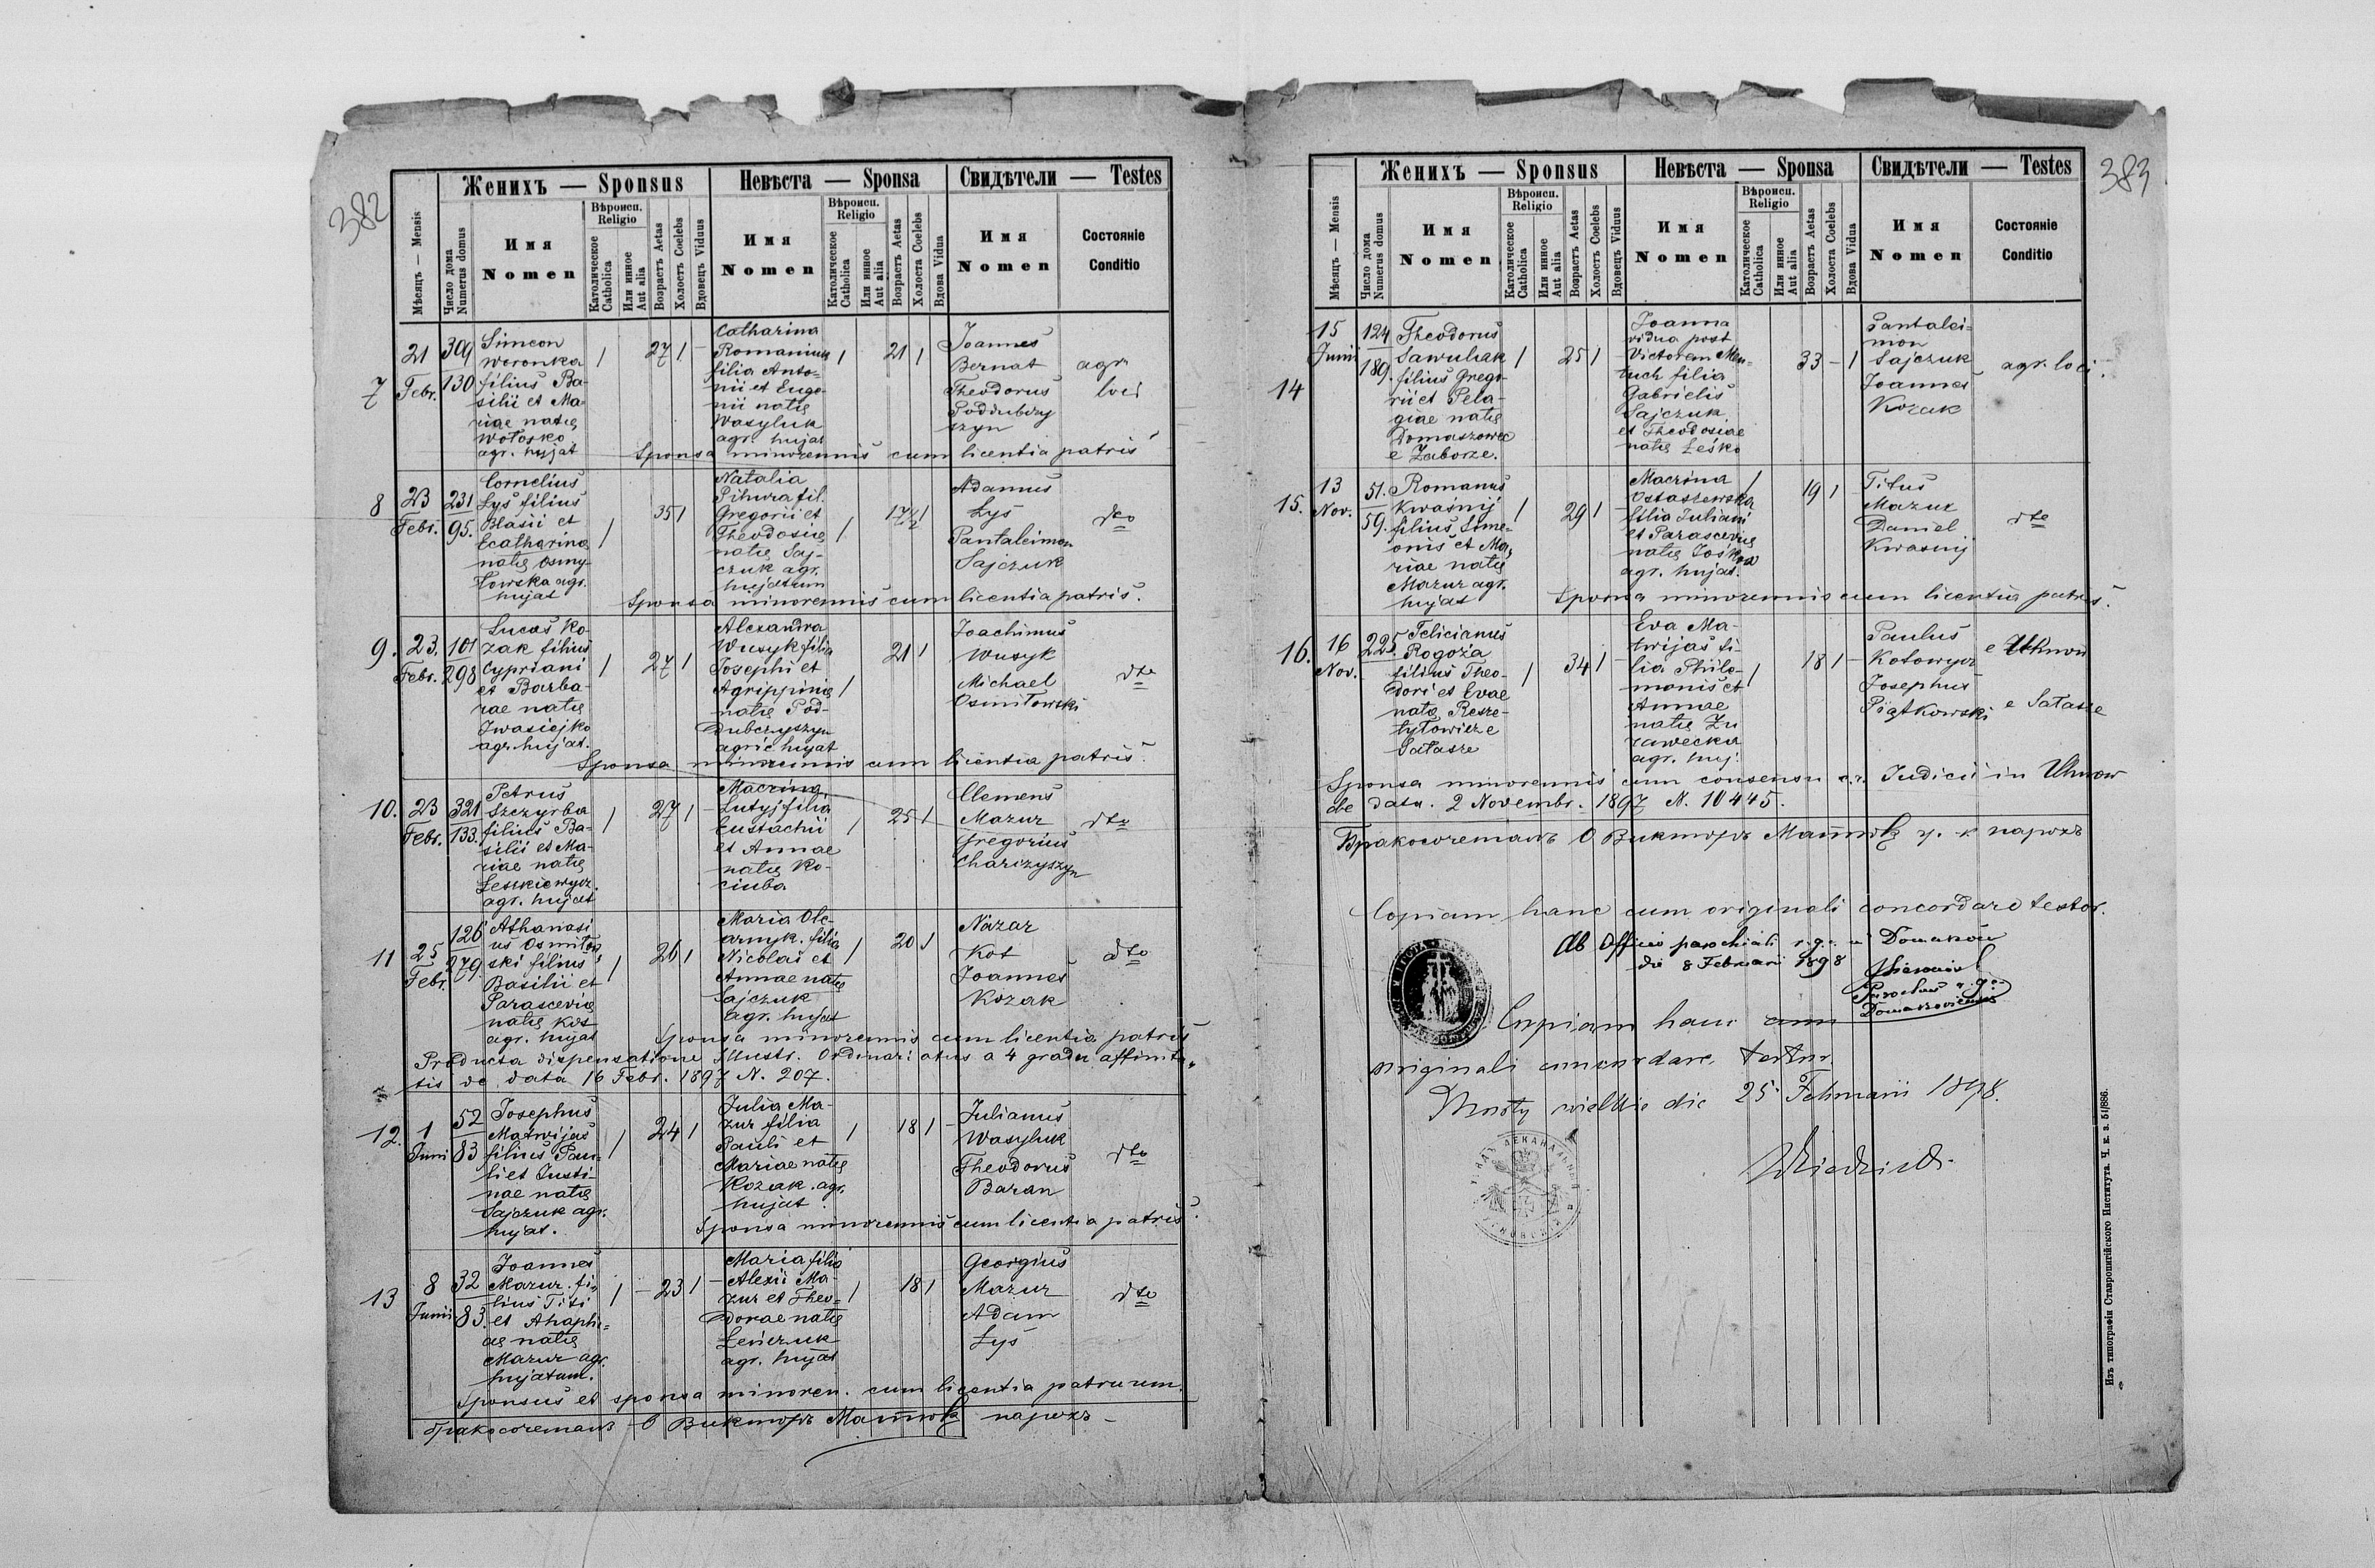 382
Женихъ — Sponsus
Невѣста — Sponsa
Свидѣтели — Testes
Мѣсяцъ — Mensis
Число дома
Numerus domus
Имя
Nomen
Вѣроисп.
Religio
Католическое
Catholica
Или инное
Aut alia
Возрастъ Aetas
Холостъ Coelebs
Вдовецъ Viduus
Имя
Nomen
Вѣроисп.
Religio
Католическое
Catholica
Или инное
Aut alia
Возрастъ Aetas
Холоста Coelebs
Вдова Vidua
Имя
Nomen
Состояніе
Conditio
7
21
Febr.
309
130
Simeon
Woronka
filius Ba-
silii et Ma-
riae natae
Wołosko
agr. hujat
1
27 1
Catharina
Romaniuk
filia Anto-
nii et Eugo-
nii natae
Wasyluk
agr. hujat
1
21 1
Joannes
Bernat
Theodorus
Poddubczy
szyn
agr
loci
Sponsa minorennis cum licentia patris
8
23
Febr.
231
95.
Cornelius
Łys filius
Blasii et
Ecatharinae
natae Osmy
łowska agr.
hujat
1
35 1
Natalia
Pihura fil.
Gregorii et
Theodosiae
natae Saj-
czuk agr.
hujatum
1
17 1/2 1
Adamus
Łys
Pantaleimon
Sajczuk
dto
Sponsa minorennis cum licentia patris.
9.
23.
Febr.
101
298
Lucas Ko-
zak filius
Cypriani
et Barba-
rae natae
Iwasiejko
agr. hujat.
1
27 1
Alexandra
Wusyk filia
Josephi et
Agrippinae
natae Pod-
dubczyszyn
agric hujat
1
21 1
Joachimus
Wusyk
Michael
Osmiłowski
dto
Sponsa minorennis cum licentia patris.
10.
23
Febr.
321
133.
Petrus
Szczyrba
filius Ba-
silii et Ma-
riae natae
Leszkiewycz.
agr. hujat
1
27 1
Macrina
Lutyj filia
Eustachii
et Annae
natae Ko-
ciuba
1
25 1
Clemens
Mazur
Gregorius
Charczyszyn
dto
11
25
Febr.
126
279.
Athanasi
us Osmiłow
ski filius
Basilii et
Parasceviae
natae Kot
agr. hujat
1
26 1
Maria Ole-
arnyk. filia
Nicolai et
Annae natae
Sajczuk
agr. hujat
1
20 1
Nazar
Kot
Joannes
Kozak
dto
Sponsa minorennis cum licentia patris
Producta dispensatione Illustr. Ordinariatus a 4 gradu affinita-
tis de data 16 Febr. 1897 N. 207.
12.
1
Juni
52
83
Josephus
Matwijas
filius Pau-
li et Justi-
nae natae
Sajczuk agr.
hujat.
1
24 1
Julia Ma-
zur filia
Pauli et
Mariae natae
Kozak. agr.
hujat.
1
18 1
Julianus
Wasyluk
Theodorus
Baran
dto
Sponsa minorennis cum licentia patris.
13
8
Junii
32
83.
Joannes
Mazur. fi-
lius Titi
et Ahaphi-
ae natae
Mazur agr.
hujatum.
1
23 1
Maria filia
Alexii Ma-
zur et Theo-
dorae natae
Leńczuk
agr. hujat
1
18 1
Georgius
Mazur
Adam
Łys
dto
Sponsus et sponsa minoren. cum licentia patruum.
Бракосочеталъ О Викторъ парохъ
383
Женихъ — Sponsus
Невѣста — Sponsa
Свидѣтели — Testes
Мѣсяцъ — Mensis
Число дома
Numerus domus
Имя
Nomen
Вѣроисп.
Religio
Католическое
Catholica
Или инное
Aut alia
Возрастъ Aetas
Холостъ Coelebs
Вдовецъ Viduus
Имя
Nomen
Вѣроисп.
Religio
Католическое
Catholica
Или инное
Aut alia
Возрастъ Aetas
Холоста Coelebs
Вдова Vidua
Имя
Nomen
Состояніе
Conditio
14
15
Junii
124
189.
Theodorus
Sawuliak
filius Grego-
rii et Pela-
giae natae
Domaszowec
e Zaborze.
1
25 1
Joanna
vidua post
Victorem Men-
tuch filia
Gabrielis
Sajczuk
et Theodosiae
natae Leśko
33 - 1
Pantalei-
mon
Sajczuk
Joannes
Kozak
agr. loci.
15.
13
Nov.
51.
59.
Romanus
Kwaśnij
filius Sime-
onis et Ma-
riae natae
Mazur agr.
hujat
1
29 1
Macrina
Ostaszewska
filia Juliani
et Parasceviae
natae
agr. hujat.
1
19 1
Titus
Mazur
Daniel
Kwasnij
dto
Sponsa minorennis cum licentia patris.
16.
16
Nov.
225.
Felicianus
Rogoża
filius Theo-
dori et Evae
nata Resze-
tyłowicz e
Sałasze
1
34 1
Eva Ma-
twijas fi-
lia Philo-
monis et
Annae
natae Żu
rawecka
agr. huj.
1
18 1
Paulus
Kotowycz
Josephus
Piątkowski
e Uhnow
e Sałasze
Sponsa minorennis cum consensu c.r. Iudicii in Uhnow
de data. 2 Novembr. 1897 N. 10445.
Бракосочеталъ О Викторъ г. к парохъ
Copiam hanc cum originali concordare testor.
Ab Officio parochiali r. g. c. in Domaszów
die 8 Februari 1898
Parochus r. g. c.
Domaszoviensis
Copiam hanc cum
originali concordare testor.
Mosty wielkie die 25 Februarii 1898.
Изъ типографіи Ставропигійского Института. Ч. к. з. 51/886.